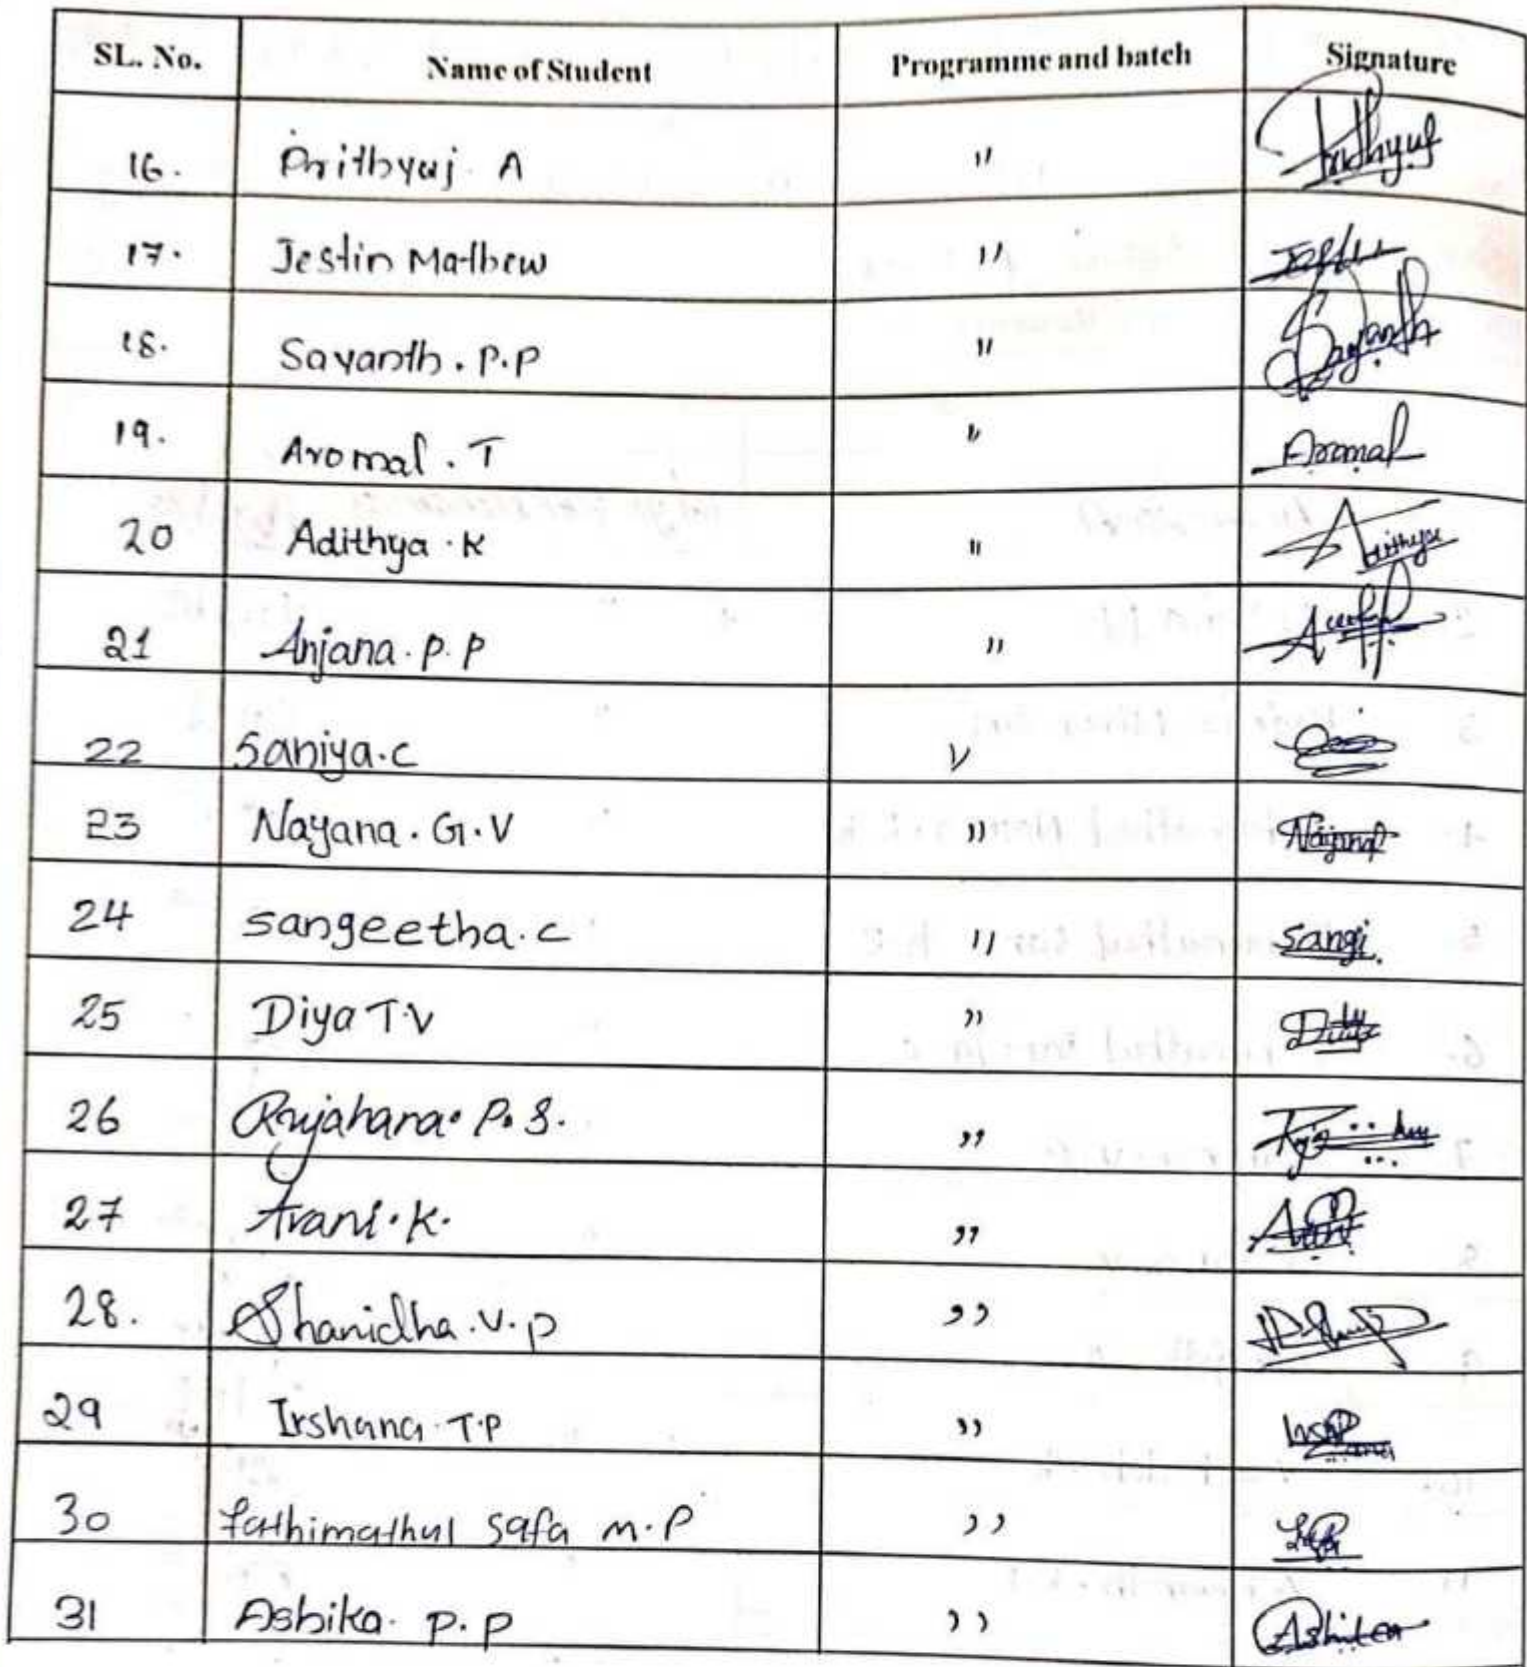 SL. No. Name of Student Programme and batch Signature
16. Prithyuj. A " Prithyuj
17. Jestin Mathew "
18. Sayanth. P.P " Sayanth
19. Aromal. T " Aromal
20 Adithya. K " Adithya
21 Anjana. P. P "
22 Saniya. C "
23 Nayana. G. V " Nayana
24 Sangeetha. C " Sangi
25 Diya T.V " Diya
26 Rujahana. P. S. "
27 Avani. K. "
28. Shanidha. V. P "
29 Irshana. T.P "
30 Fathimathul Safa M. P "
31 Ashika. P. P " Ashika